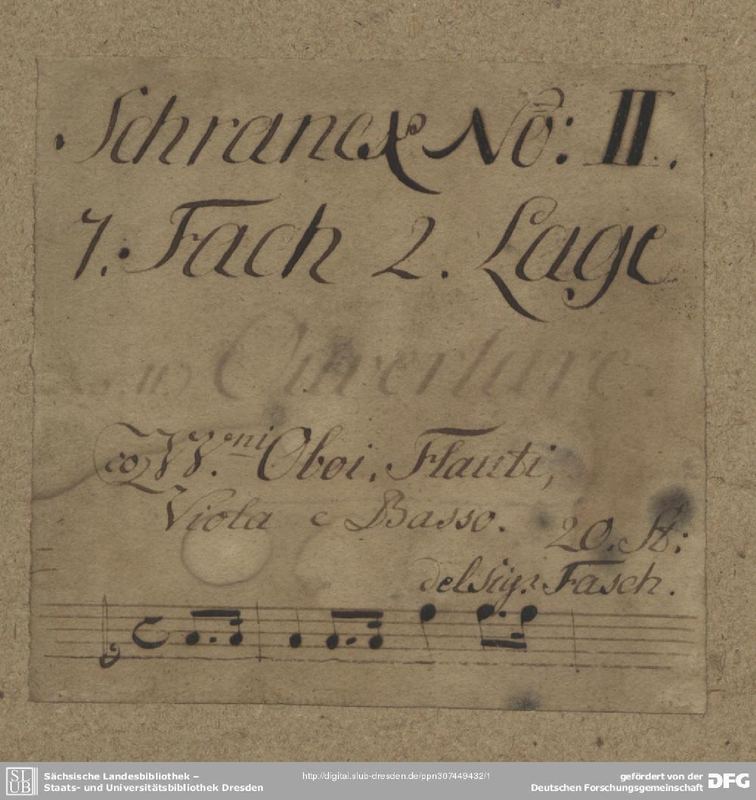 Schranck No: II.
7. Fach 2. Lage
Ouverture.
co VV.ni Oboi, Flauti,
Viola e Basso. 20. St:
del Sigr. Fasch.
SLUB
Sächsische Landesbibliothek –
Staats- und Universitätsbibliothek Dresden
http://digital.slub-dresden.de/ppn307449432/1
gefördert von der
Deutschen Forschungsgemeinschaft
DFG